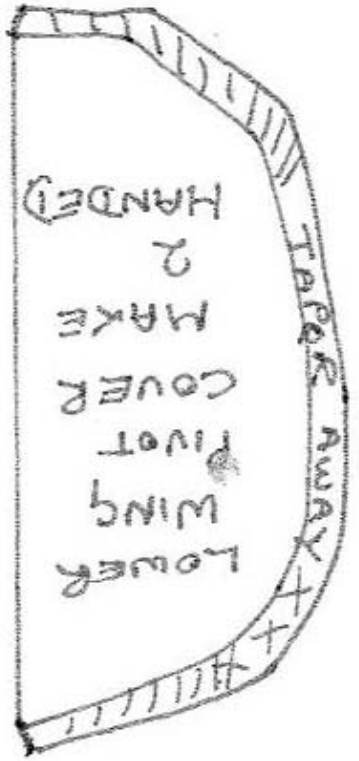 LOWER
WING
PIVOT
COVER
MAKE
2
HANDED
TAPER AWAY